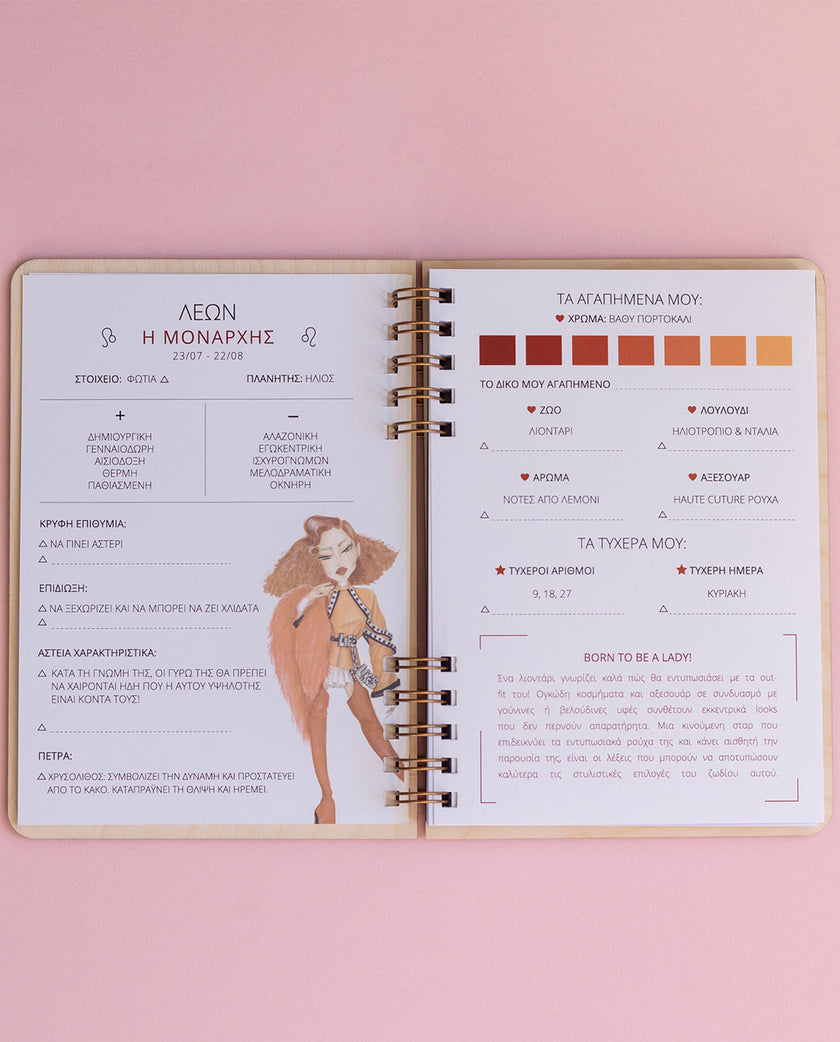 ΛΕΩΝ
Η ΜΟΝΑΡΧΗΣ
23/07 - 22/08
ΣΤΟΙΧΕΙΟ: ΦΩΤΙΑ
ΠΛΑΝΗΤΗΣ: ΗΛΙΟΣ
+
ΔΗΜΙΟΥΡΓΙΚΗ
ΓΕΝΝΑΙΟΔΩΡΗ
ΑΙΣΙΟΔΟΞΗ
ΘΕΡΜΗ
ΠΑΘΙΑΣΜΕΝΗ
–
ΑΛΑΖΟΝΙΚΗ
ΕΓΩΚΕΝΤΡΙΚΗ
ΙΣΧΥΡΟΓΝΩΜΩΝ
ΜΕΛΟΔΡΑΜΑΤΙΚΗ
ΟΚΝΗΡΗ
ΚΡΥΦΗ ΕΠΙΘΥΜΙΑ:
ΝΑ ΓΙΝΕΙ ΑΣΤΕΡΙ
ΕΠΙΔΙΩΞΗ:
ΝΑ ΞΕΧΩΡΙΖΕΙ ΚΑΙ ΝΑ ΜΠΟΡΕΙ ΝΑ ΖΕΙ ΧΛΙΔΑΤΑ
ΑΣΤΕΙΑ ΧΑΡΑΚΤΗΡΙΣΤΙΚΑ:
ΚΑΤΑ ΤΗ ΓΝΩΜΗ ΤΗΣ, ΟΙ ΓΥΡΩ ΤΗΣ ΘΑ ΠΡΕΠΕΙ
ΝΑ ΧΑΙΡΟΝΤΑΙ ΗΔΗ ΠΟΥ Η ΑΥΤΟΥ ΥΨΗΛΟΤΗΣ
ΕΙΝΑΙ ΚΟΝΤΑ ΤΟΥΣ!
ΠΕΤΡΑ:
ΧΡΥΣΟΛΙΘΟΣ: ΣΥΜΒΟΛΙΖΕΙ ΤΗΝ ΔΥΝΑΜΗ ΚΑΙ ΠΡΟΣΤΑΤΕΥΕΙ
ΑΠΟ ΤΟ ΚΑΚΟ. ΚΑΤΑΠΡΑΫΝΕΙ ΤΗ ΘΛΙΨΗ ΚΑΙ ΗΡΕΜΕΙ.
ΤΑ ΑΓΑΠΗΜΕΝΑ ΜΟΥ:
ΧΡΩΜΑ: ΒΑΘΥ ΠΟΡΤΟΚΑΛΙ
ΤΟ ΔΙΚΟ ΜΟΥ ΑΓΑΠΗΜΕΝΟ
ΖΩΟ
ΛΙΟΝΤΑΡΙ
ΛΟΥΛΟΥΔΙ
ΗΛΙΟΤΡΟΠΙΟ & ΝΤΑΛΙΑ
ΑΡΩΜΑ
ΝΟΤΕΣ ΑΠΟ ΛΕΜΟΝΙ
ΑΞΕΣΟΥΑΡ
HAUTE CUTURE ΡΟΥΧΑ
ΤΑ ΤΥΧΕΡΑ ΜΟΥ:
ΤΥΧΕΡΟΙ ΑΡΙΘΜΟΙ
9, 18, 27
ΤΥΧΕΡΗ ΗΜΕΡΑ
ΚΥΡΙΑΚΗ
BORN TO BE A LADY!
Ένα λιοντάρι γνωρίζει καλά πώς θα εντυπωσιάσει με τα out-
fit του! Ογκώδη κοσμήματα και αξεσουάρ σε συνδυασμό με
γούνινες ή βελούδινες υφές συνθέτουν εκκεντρικά looks
που δεν περνούν απαρατήρητα. Μια κινούμενη σταρ που
επιδεικνύει τα εντυπωσιακά ρούχα της και κάνει αισθητή την
παρουσία της, είναι οι λέξεις που μπορούν να αποτυπώσουν
καλύτερα τις στυλιστικές επιλογές του ζωδίου αυτού.